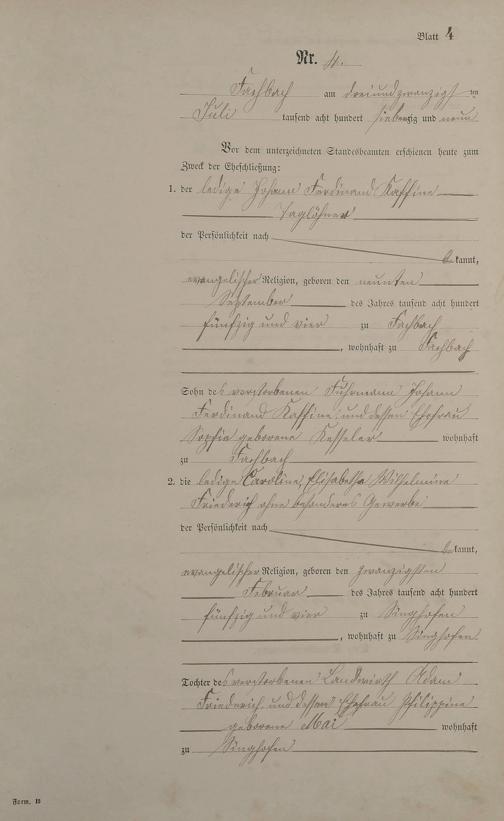 Blatt 4
Nr. 4.
Fachbach am dreiundzwanzigsten
Juli tausend acht hundert siebenzig und neun
Vor dem unterzeichneten Standesbeamten erschienen heute zum
Zweck der Eheschließung:
1. der ledige Johann Ferdinand Kaffine
Taglöhner
der Persönlichkeit nach
bekannt,
evangelischer Religion, geboren den neunten
September des Jahres tausend acht hundert
fünfzig und vier zu Fachbach
, wohnhaft zu Fachbach
Sohn des verstorbenen Fuhrmann Johann
Ferdinand Kaffine, und dessen Ehefrau
Sophia geborene Kesseler wohnhaft
zu Fachbach
2. die ledige Caroline, Elisabetha Wilhelmine
Friederich ohne besonderes Gewerbe
der Persönlichkeit nach
bekannt,
evangelischer Religion, geboren den zwanzigsten
Februar des Jahres tausend acht hundert
fünfzig und vier zu Singhofen
, wohnhaft zu Singhofen
Tochter des verstorbenen Landwirth Adam
Friederich und dessen Ehefrau Philippine
geborene Mai wohnhaft
zu Singhofen
Form. B